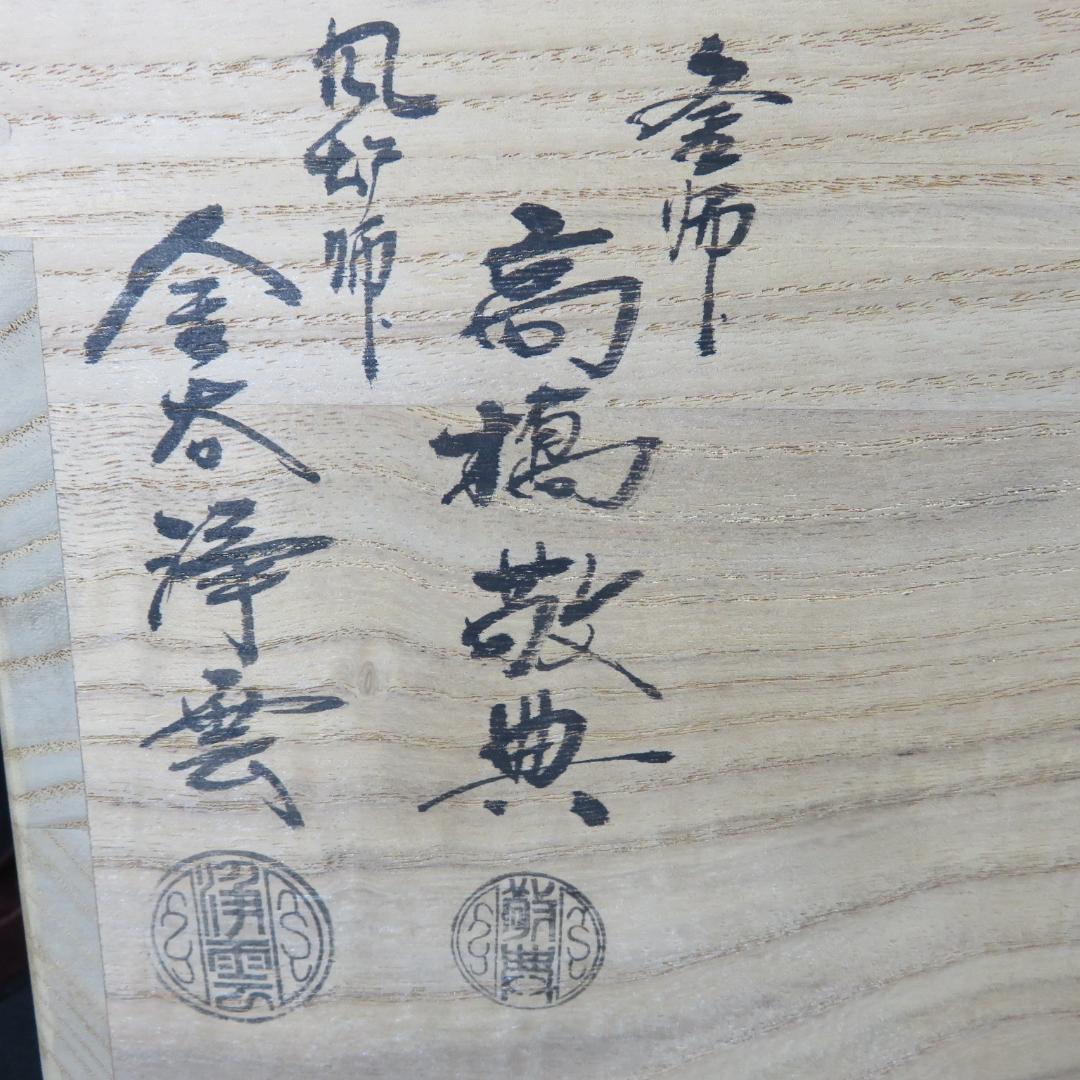 釜師
高橋敬典
敬典
風炉師
金谷浄雲
浄雲